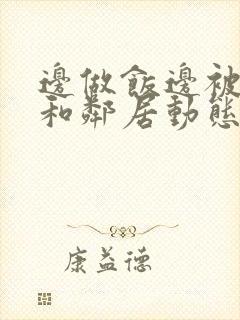 邊做飯邊被
和鄰居動態
康益德